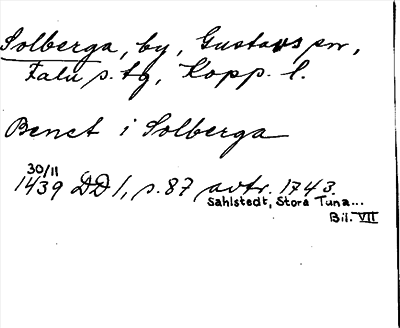 Solberga, by, Gustavs sn,
Falu s. tg, Kopp. l.
Benet i Solberga
30/11
1439 DD 1, s. 87 avtr. 1743.
Sahlstedt, Stora Tuna...
Bil. VII